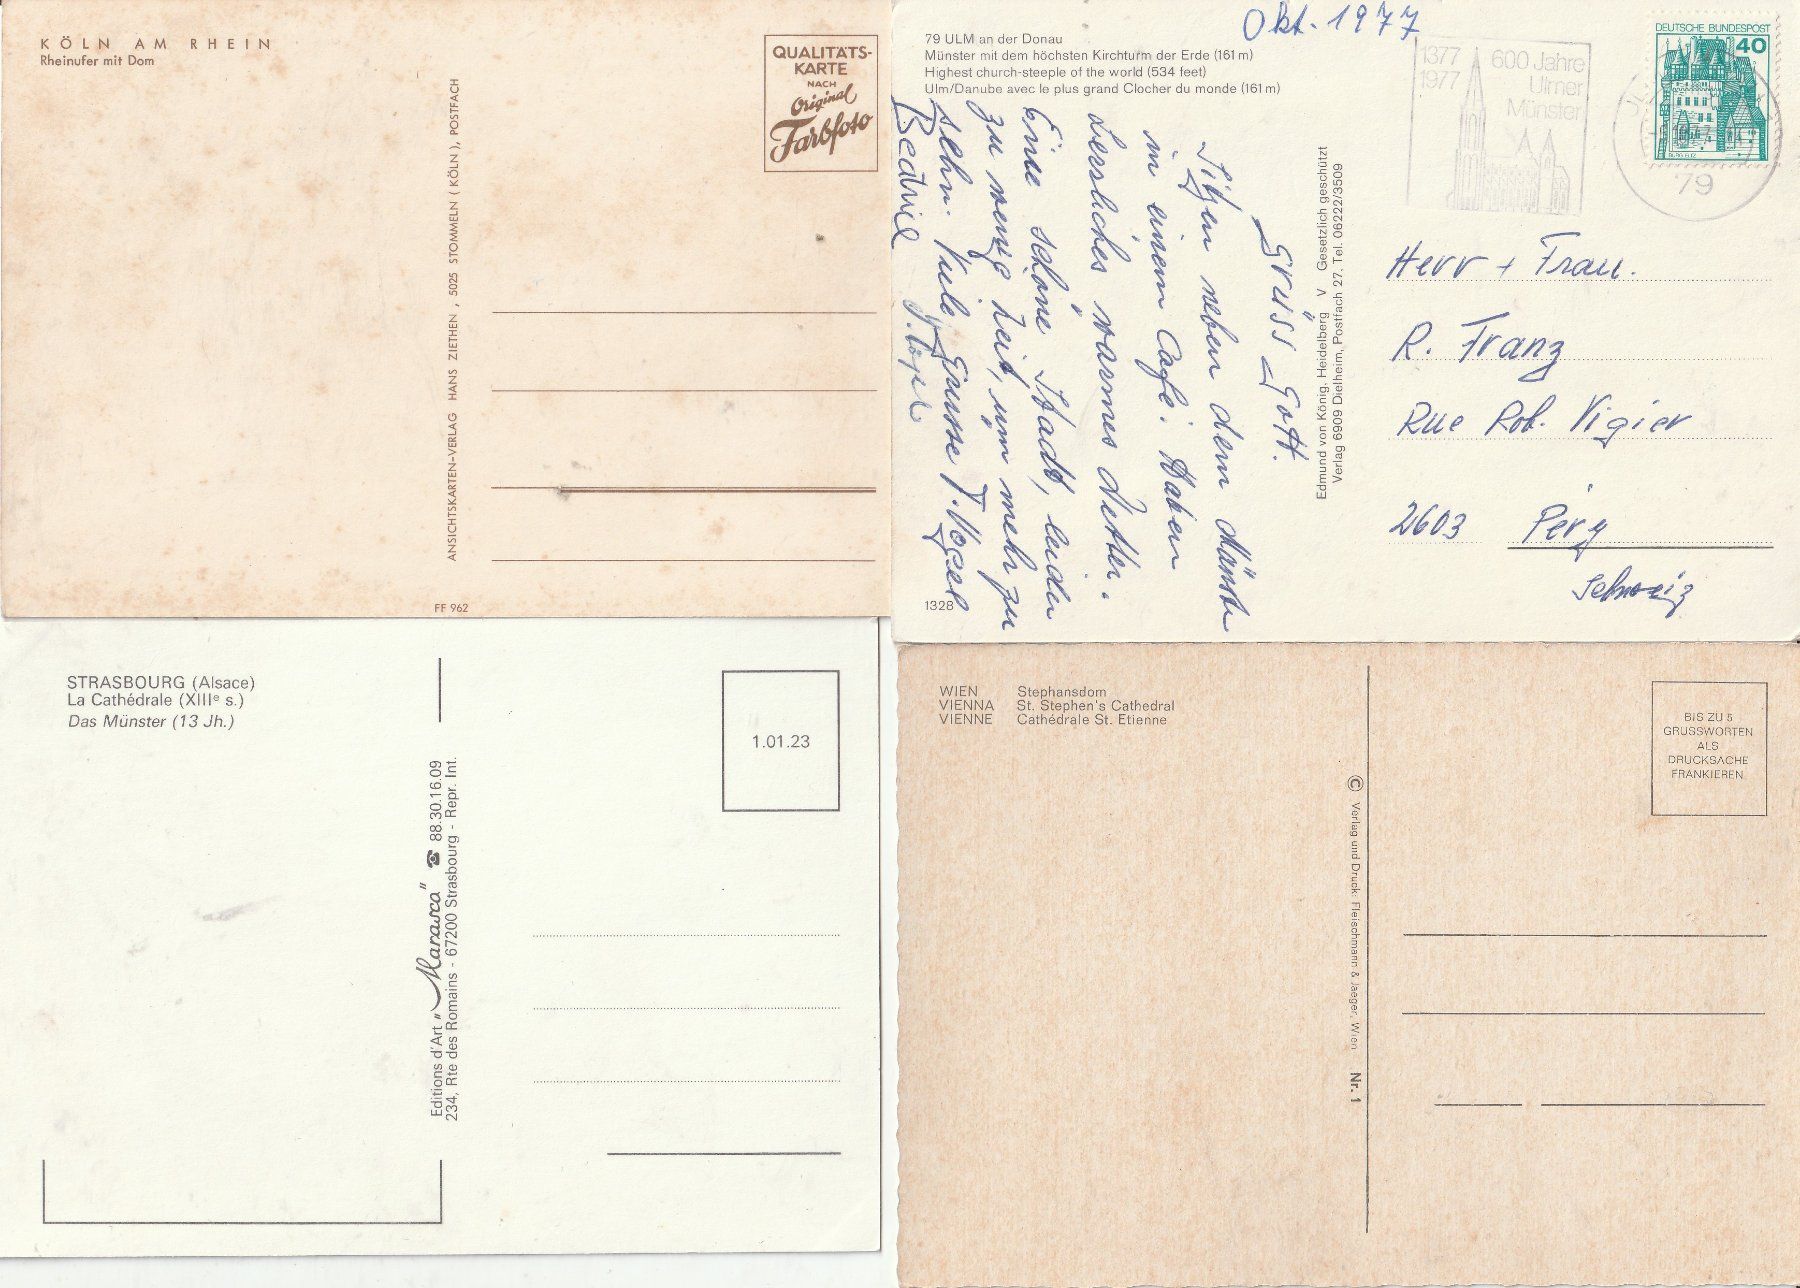 KÖLN AM RHEIN
Rheinufer mit Dom
QUALITÄTS-
KARTE
NACH
Original
Farbfoto
ANSICHTSKARTEN-VERLAG HANS ZIETHEN, 5025 STOMMELN (KÖLN), POSTFACH
FF 962
Okt. 1977
79 ULM an der Donau
Münster mit dem höchsten Kirchturm der Erde (161 m)
Highest church-steeple of the world (534 feet)
Ulm/Danube avec le plus grand Clocher du monde (161 m)
1377
1977
600 Jahre
Ulmer
Münster
DEUTSCHE BUNDESPOST
40
BURG ELTZ
79
Grüss Gott.
Sitzen neben dem Münster
in einem Café. Haben
herrliches warmes Wetter.
Eine schöne Stadt, leider
zu wenig Zeit, um mehr zu
sehn. Viele Grüsse F. Vogel
Edmund von König, Heidelberg V Gesetzlich geschützt
Verlag 6909 Dielheim, Postfach 27. Tel. 06222/3509
Herr + Frau.
R. Franz
Rue Rob. Vigier
2603 Péry
Schweiz
1328
STRASBOURG (Alsace)
La Cathédrale (XIIIe s.)
Das Münster (13 Jh.)
1.01.23
Editions d'Art "Marasca" ☎ 88.30.16.09
234, Rte des Romains - 67200 Strasbourg - Repr. Int.
WIEN Stephansdom
VIENNA St. Stephen's Cathedral
VIENNE Cathédrale St. Etienne
BIS ZU 5
GRUSSWORTEN
ALS
DRUCKSACHE
FRANKIEREN
© Verlag und Druck: Fleischmann & Jaeger, Wien Nr. 1